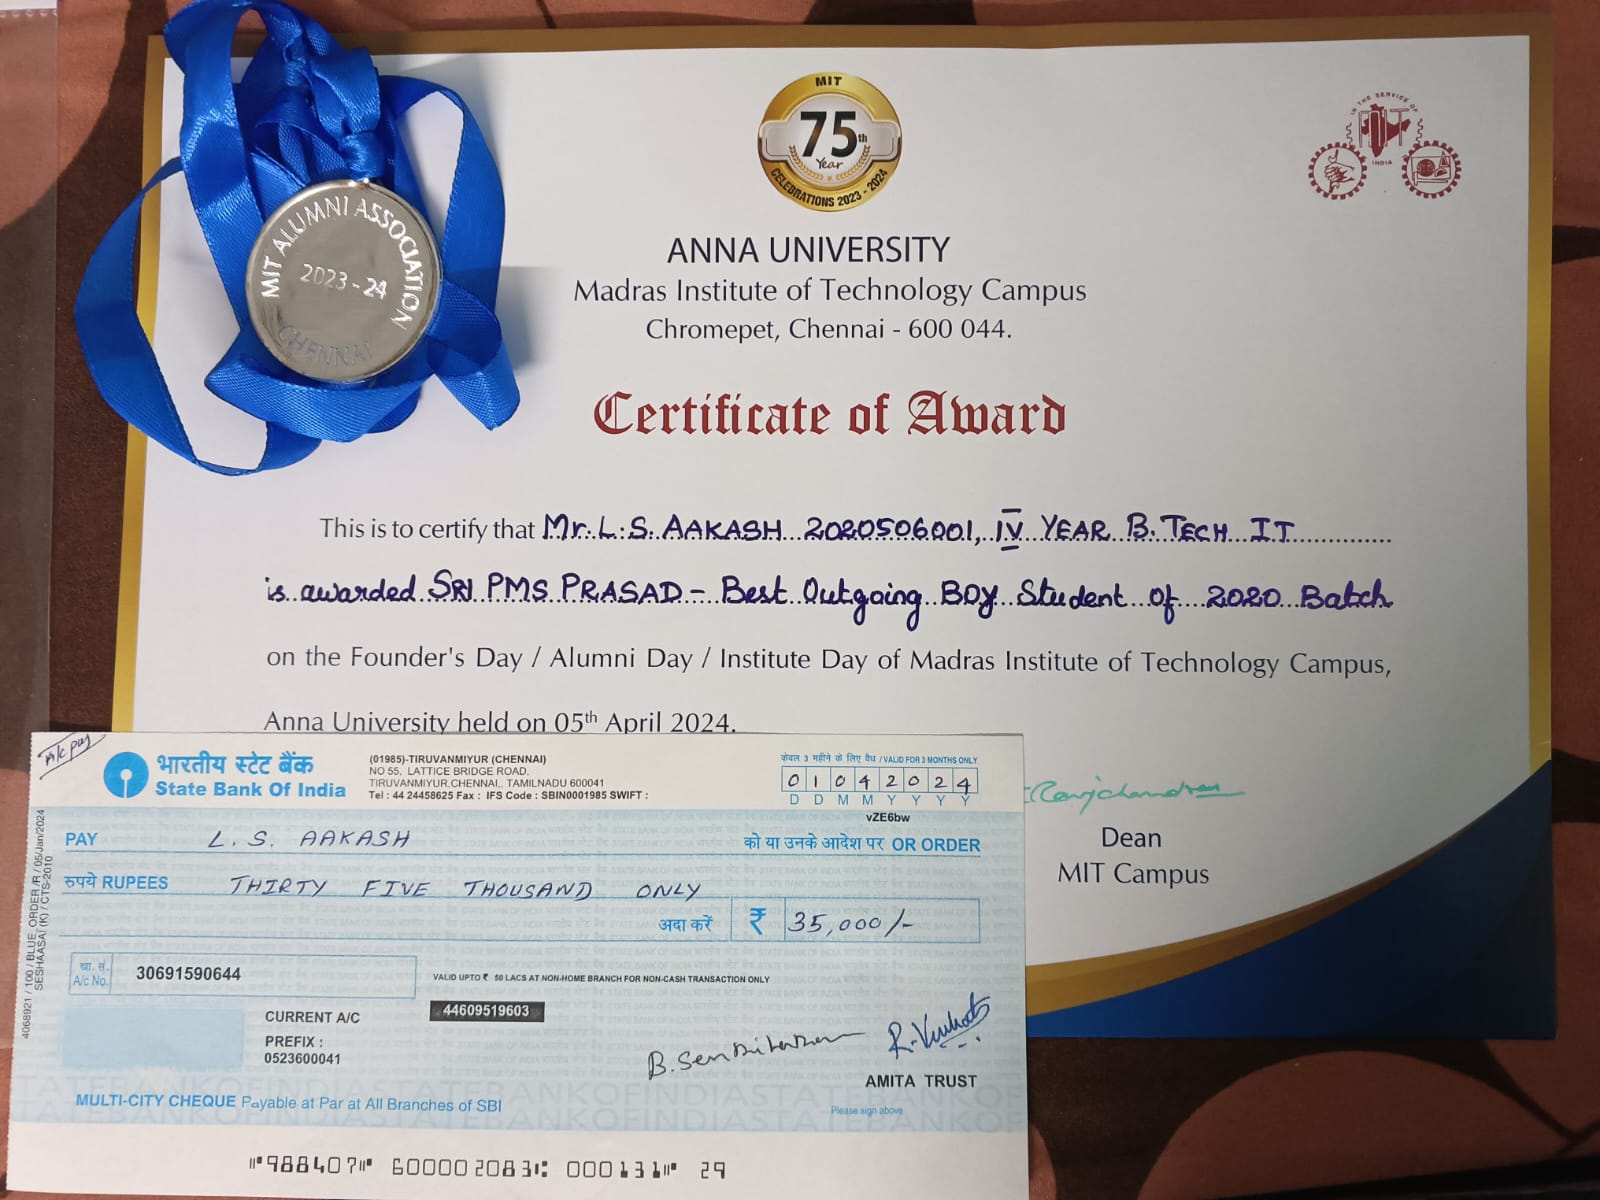 MIT ALUMNI ASSOCIATION
2023 - 24
CHENNAI
MIT
75th
Year
CELEBRATIONS 2023 - 2024
IN THE SERVICE OF
MIT
INDIA
ANNA UNIVERSITY
Madras Institute of Technology Campus
Chromepet, Chennai - 600 044.
Certificate of Award
This is to certify that Mr. L.S. AAKASH 2020506001, IV YEAR B.TECH IT
is awarded SRI PMS PRASAD - Best Outgoing Boy Student of 2020 Batch
on the Founder's Day / Alumni Day / Institute Day of Madras Institute of Technology Campus,
Anna University held on 05th April 2024.
Dean
MIT Campus
A/c pay
भारतीय स्टेट बैंक
State Bank Of India
(01985)-TIRUVANMIYUR (CHENNAI)
NO 55, LATTICE BRIDGE ROAD,
TIRUVANMIYUR,CHENNAI,. TAMILNADU 600041
Tel : 44 24458625 Fax : IFS Code : SBIN0001985 SWIFT :
केवल 3 महीने के लिए वैध / VALID FOR 3 MONTHS ONLY
01042024
D D M M Y Y Y Y
vZE6bw
PAY L. S. AAKASH को या उनके आदेश पर OR ORDER
रुपये RUPEES THIRTY FIVE THOUSAND ONLY
अदा करें ₹ 35,000/-
खा. सं.
A/c No. 30691590644
VALID UPTO ₹ 50 LACS AT NON-HOME BRANCH FOR NON-CASH TRANSACTION ONLY
44609519603
CURRENT A/C
PREFIX :
0523600041
AMITA TRUST
Please sign above
MULTI-CITY CHEQUE Payable at Par at All Branches of SBI
⑈988407⑈ 600002083⑆ 000131⑈ 29
4068921 / 100 / BLUE_ORDER /R / 05/Jan/2024
SESHAASAI (K) / CTS-2010